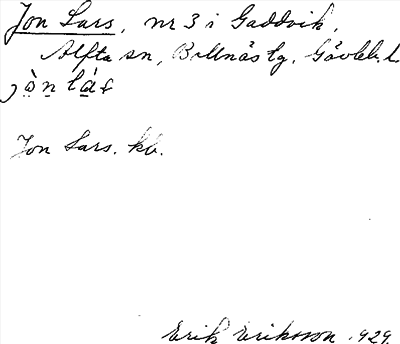 Jon Lars, nr 3 i Gaddvik,
Alfta sn, Bollnäs tg, Gävleb. l.
Jon Lars. kb.
Erik Eriksson 1929.